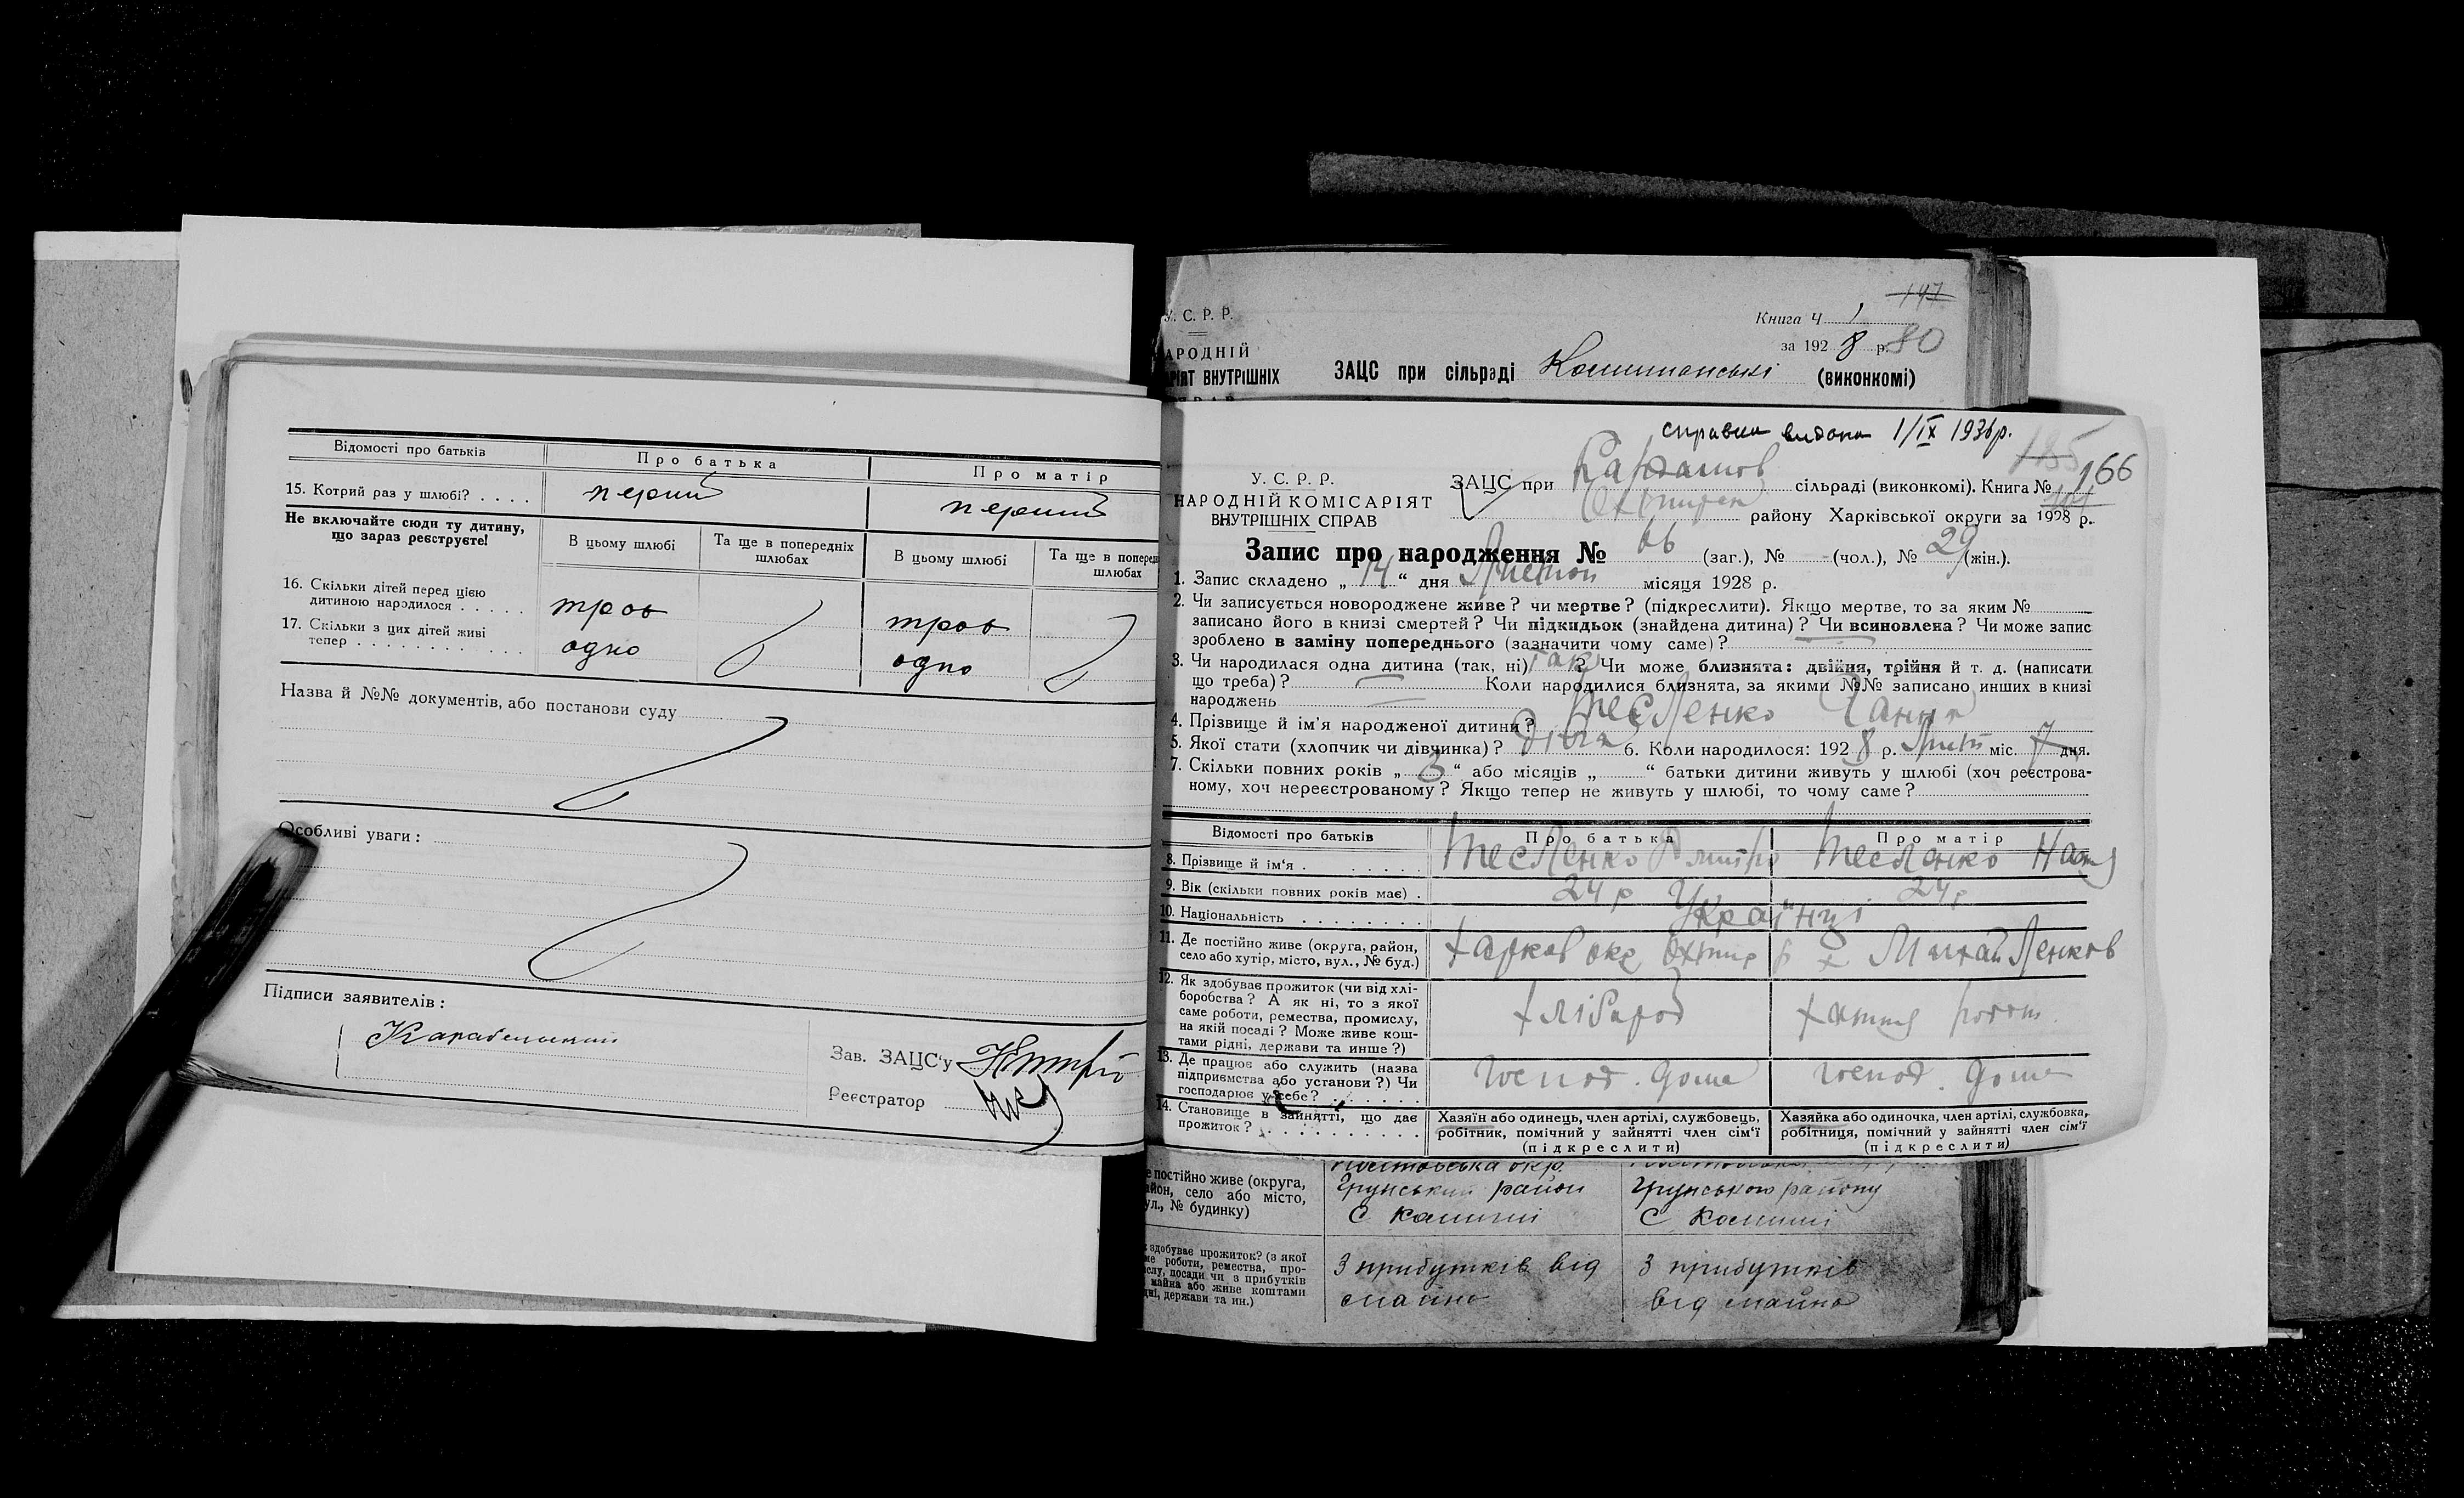 Відомості про батьків
Про батька
Про матір
15. Котрий раз у шлюбі? . . . .
перший
перший
Не включайте сюди ту дитину,
що зараз реєструєте!
В цьому шлюбі
Та ще в попередніх
шлюбах
В цьому шлюбі
Та ще в поперед
шлюбах
16. Скільки дітей перед цією
дитиною народилося . . . . .
троє
троє
17. Скільки з цих дітей живі
тепер . . . . . . . . . . . .
одно
одно
Назва й №№ документів, або постанови суду
Особливі уваги :
Підписи заявителів :
Зав. ЗАЦС‘у
Реєстратор
У. С. Р. Р.
АРОДНІЙ
РІЯТ ВНУТРІШНІХ
147
Книга Ч 1
за 192 8 р. 80
ЗАЦС при сільраді (виконкомі)
справка видана 1/IX 1936 р.
185
166
У. С. Р. Р.
НАРОДНІЙ КОМІСАРІЯТ
ВНУТРІШНІХ СПРАВ
ЗАЦС при сільраді (виконкомі). Книга №
району Харківської округи за 1928 р.
Запис про народження № 66 (заг.), № - (чол.), № 29 (жін.).
1. Запис складено „ 14 “ дня місяця 1928 р.
2. Чи записується новороджене живе? чи мертве? (підкреслити). Якщо мертве, то за яким №
записано його в книзі смертей? Чи підкидьок (знайдена дитина)? Чи всиновлена? Чи може запис
зроблено в заміну попереднього (зазначити чому саме)?
3. Чи народилася одна дитина (так, ні) так ? Чи може близнята: двійня, трійня й т. д. (написати
що треба)? Коли народилися близнята, за якими №№ записано инших в книзі
народжень
4. Прізвище й ім'я народженої дитини? Тесленко Ганна
5. Якої стати (хлопчик чи дівчинка)? дівч 6. Коли народилося: 192 8 р. міс. 7 дня.
7. Скільки повних років „ 3 “ або місяців „ “ батьки дитини живуть у шлюбі (хоч реєстрова-
ному, хоч нереєстрованому? Якщо тепер не живуть у шлюбі, то чому саме?
Відомості про батьків
Про батька
Про матір
8. Прізвище й ім‘я . . . . . .
Тесленко Дмитро
Тесленко
9. Вік (скільки повних років має) .
24 р
24 р
10. Національність . . . . . . . .
Українці
11. Де постійно живе (округа, район,
село або хутір, місто, вул., № буд.)
Харков окр Охтир р х Михайленков
12. Як здобуває прожиток (чи від хлі-
боробства? А як ні, то з якої
саме роботи, ремества, промислу,
на якій посаді? Може живе кош-
тами рідні, держави та инше?)
хлібороб
13. Де працює або служить (назва
підприємства або установи?) Чи
господарює у себе? . . . . . . .
господ. дома
господ. дома
14. Становище в зайнятті, що дає
прожиток? . . . . . . . . . . .
Хазяїн або одинець, член артілі, службовець,
робітник, помічний у зайнятті член сім‘ї
(підкреслити)
Хазяйка або одиночка, член артілі, службовка,
робітниця, помічний у зайнятті член сім‘ї
(підкреслити)
е постійно живе (округа,
айон, село або місто,
ул., № будинку)
Грунський район
Грунського району
здобуває прожиток? (з якої
ме роботи, ремества, про-
слу, посади чи з прибутків
майна або живе коштами
дні, держави та ин.)
З прибутків від
майна
З прибутків
від майна